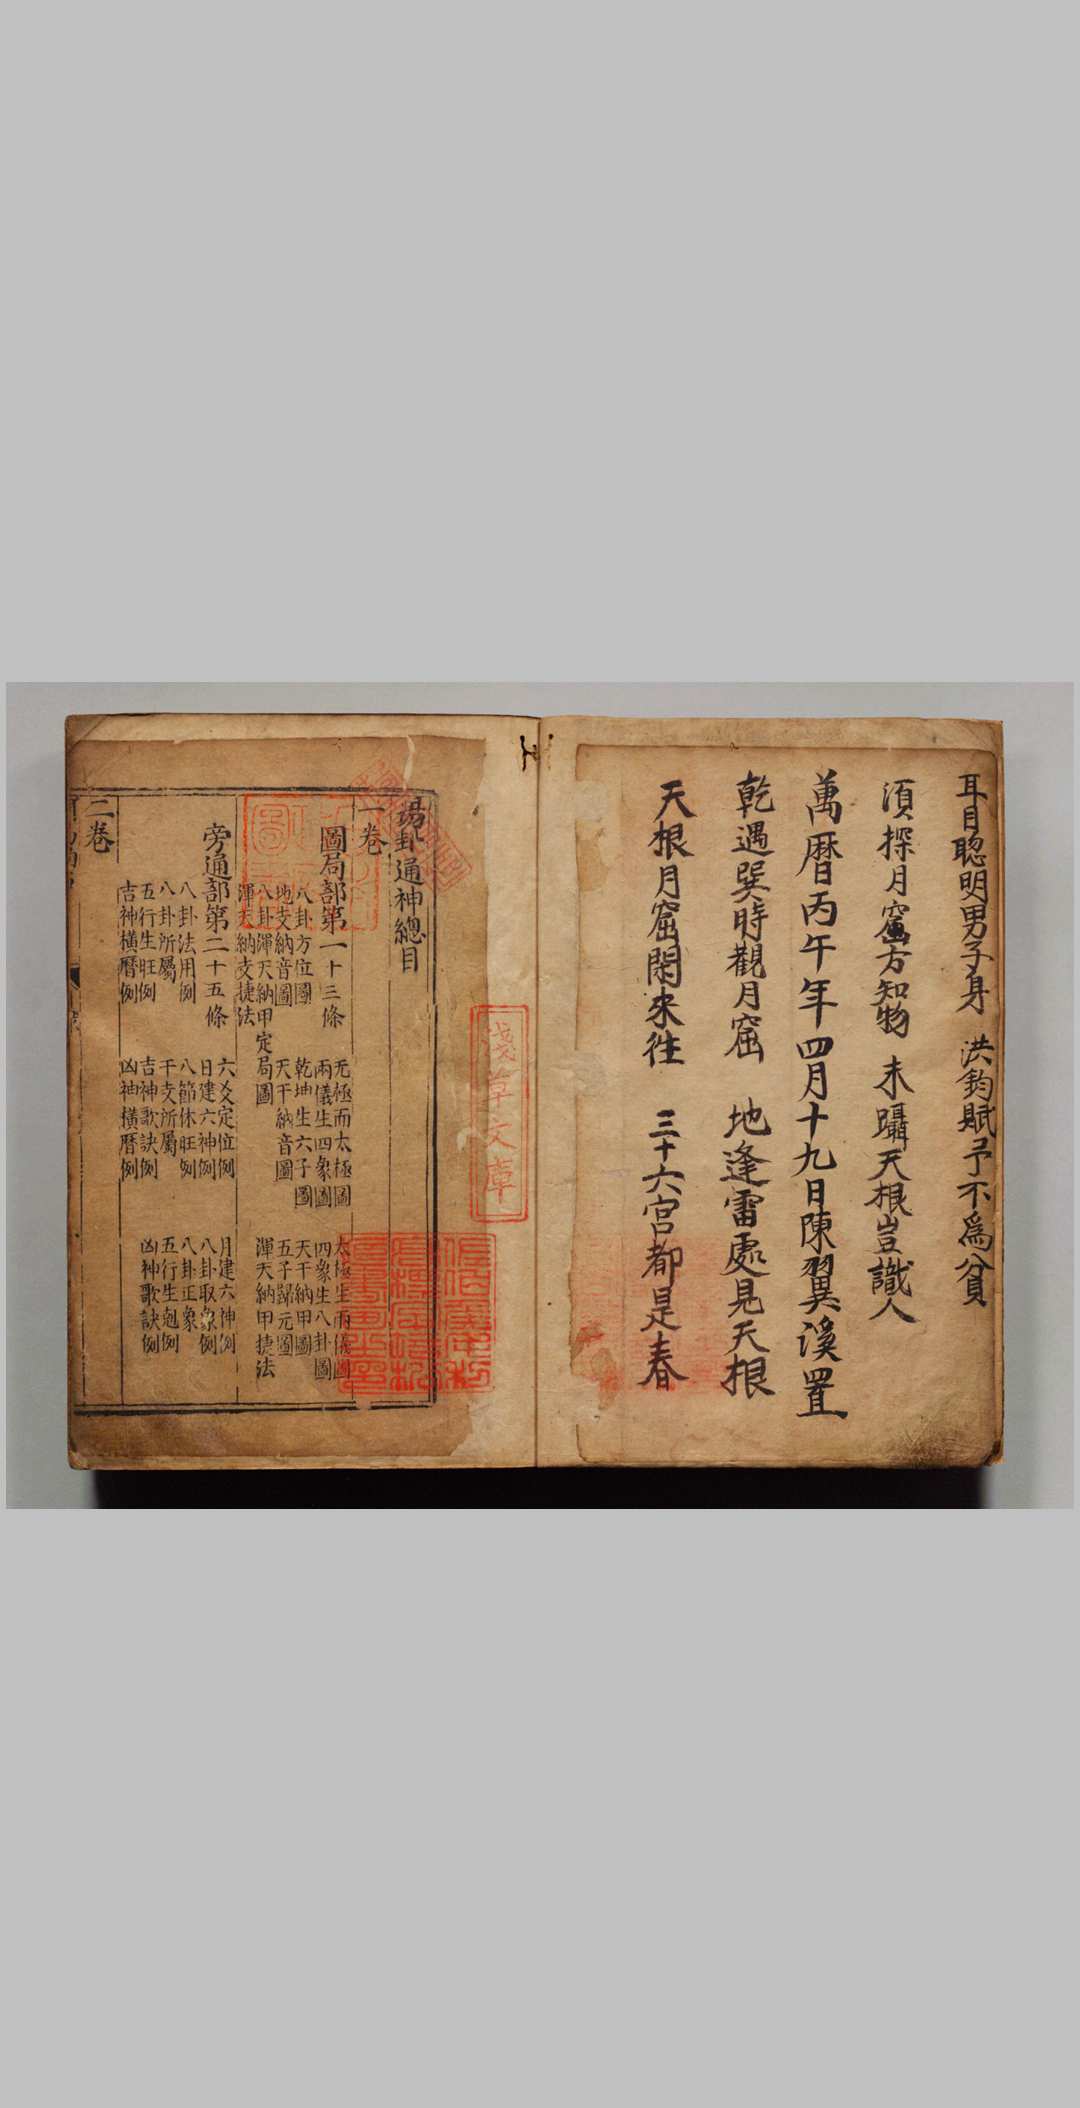 耳目聰明男子身 洪鈞賦予不爲貧
須探月窟方知物 未躡天根豈識人
萬曆丙午年四月十九日陳翼溪置
乾遇巽時觀月窟 地逢雷處見天根
天根月窟閑來往 三十六宮都是春
淺草文庫
易卦通神總目
一卷
圖局部第一十三條
无極而太極圖 太極生兩儀圖
兩儀生四象圖 四象生八卦圖
八卦方位圖 乾坤生六子圖 天干納甲圖
地支納音圖 天干納音圖 五子歸元圖
八卦渾天納甲定局圖 渾天納甲捷法
渾天納支捷法
旁通部第二十五條
六爻定位例 月建六神例
日建六神例 八卦取象例
八卦法用例 八節休旺例 八卦正象
八卦所屬 干支所屬 五行生剋例
五行生旺例 吉神歌訣例 凶神歌訣例
吉神橫曆例 凶神橫曆例
二卷